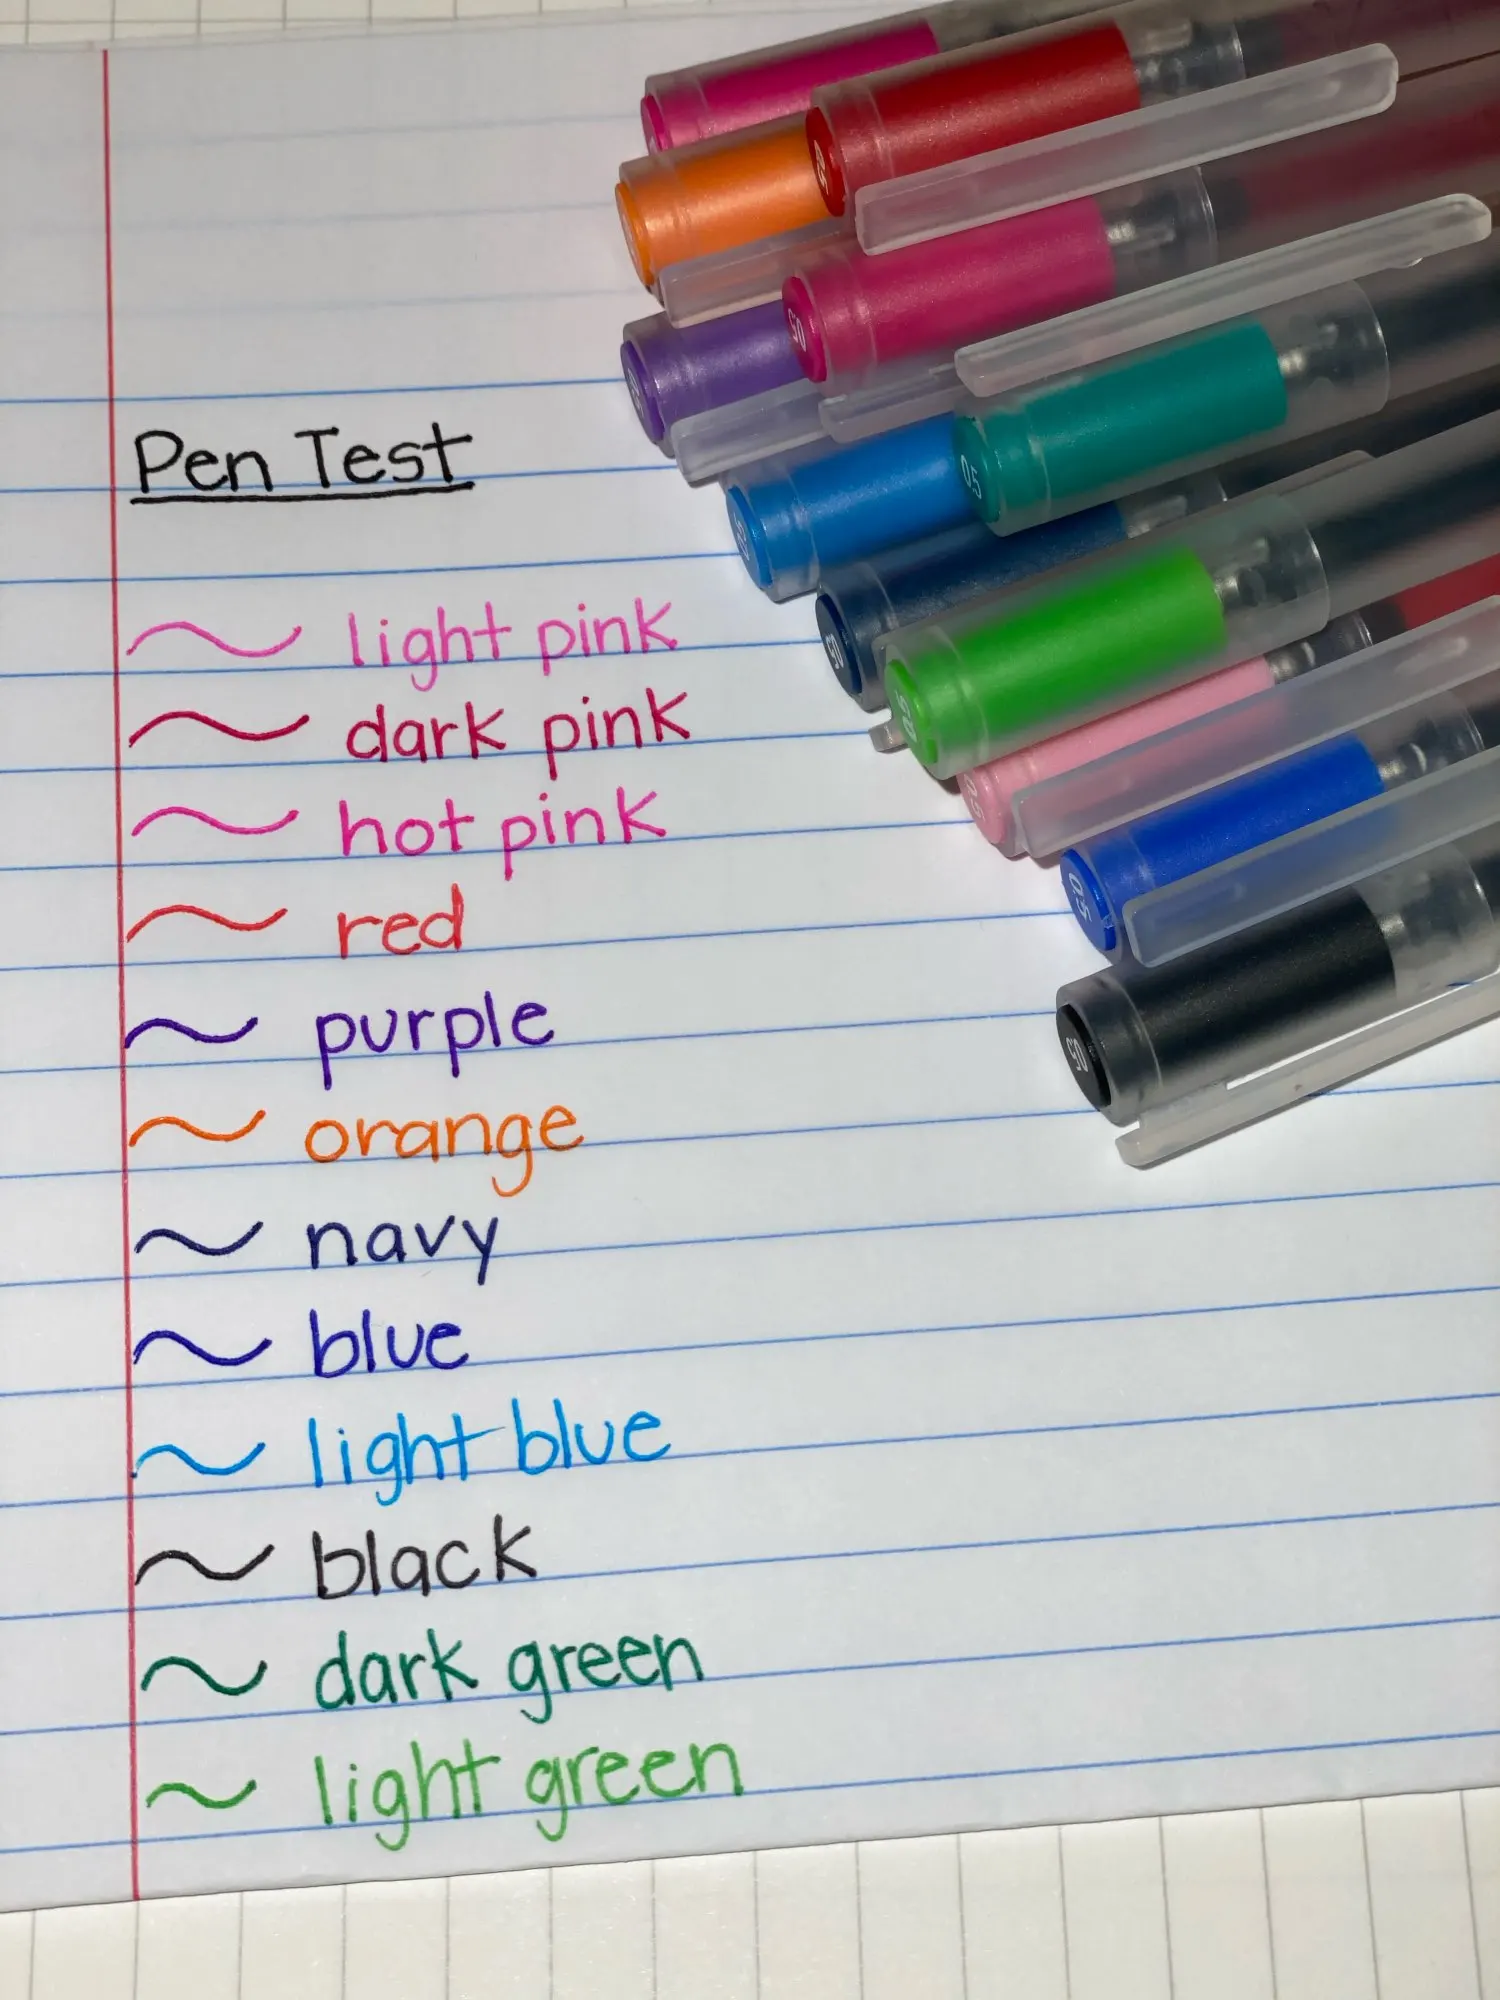 Pen Test
light pink
dark pink
hot pink
red
purple
orange
navy
blue
light blue
black
dark green
light green
05
05
05
05
05
05
05
05
05
05